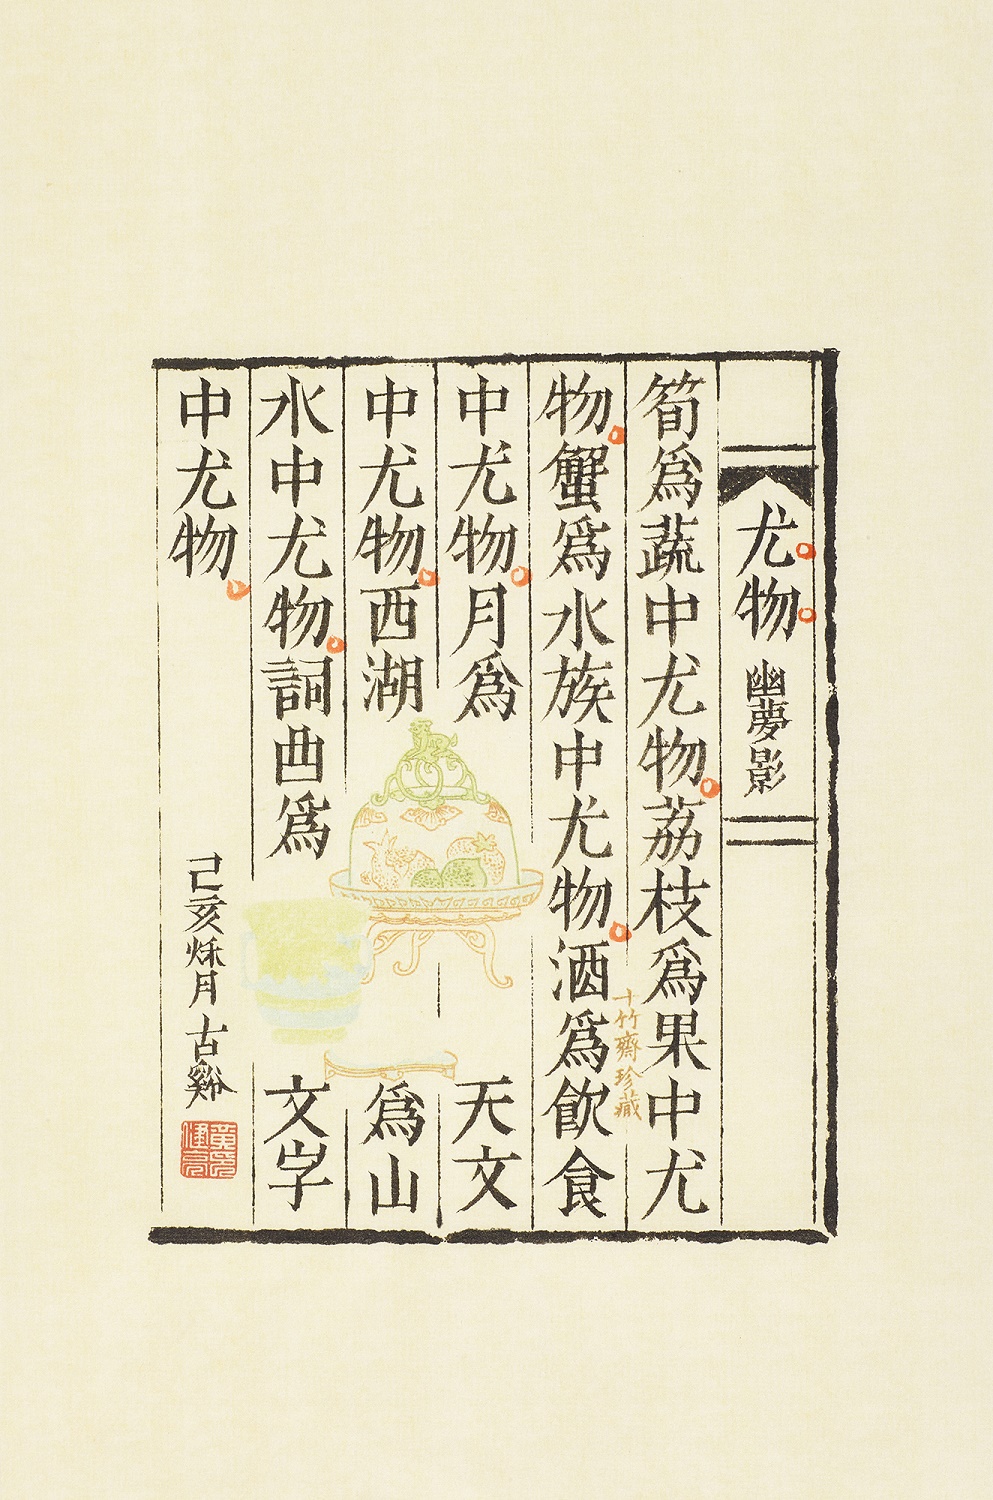 尤物 幽夢影
筍爲蔬中尤物荔枝爲果中尤
物蟹爲水族中尤物酒爲飲食
中尤物月爲天文
中尤物西湖爲山
水中尤物詞曲爲文字
中尤物
己亥秌月古谿
十竹齋珍藏